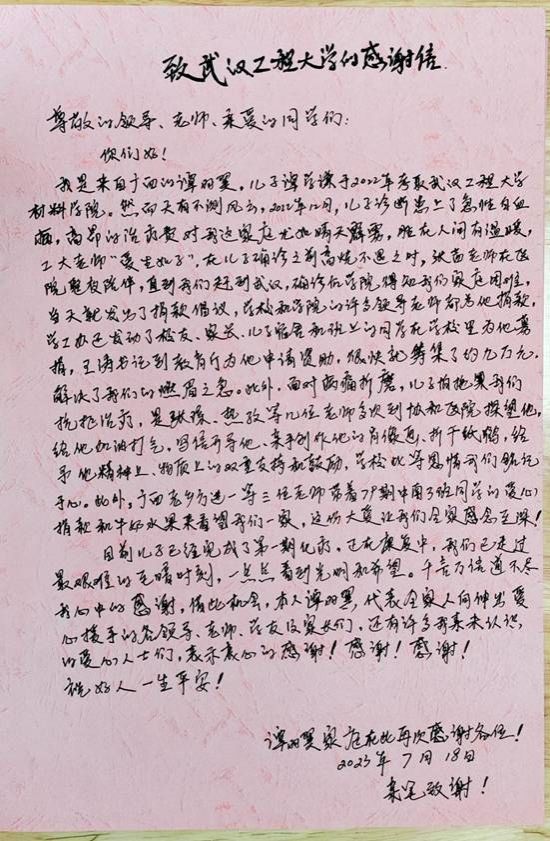 致武汉工程大学的感谢信
尊敬的领导、老师、亲爱的同学们:
你们好!
我是来自广西的谭 ,儿子谭 于2022年考取武汉工程大学
材料学院。然而天有不测风云,2022年12月,儿子诊断患上了急性白血
病,高昂的治疗费对我这家庭尤如晴天霹雳,胜在人间有温暖,
工大老师“爱生如子”,在儿子确诊之前高烧不退之时,张 老师在医
院整夜陪伴,直到我们赶到武汉,确诊后学院得知我们家庭困难,
当天就发出了捐款倡议,学校和学院的许多领导老师都为他捐款,
学工办还发动了校友、家长、儿子宿舍和班上的同学在学校里为他募
捐,王 书记到教育 为他申请资助,很快就筹集了约九万元,
解决了我们的燃眉之急。此外,面对病痛折磨,儿子 累我们
抗拒治疗,是张 、 等几位老师多次到协和医院探望他,
给他加油打气,写信开导他、亲手创作他的肖像画、折千纸鹤,给
予他精神上、物质上的双重支持和鼓励,学校此等恩情我们铭记
于心。此外,广西老乡 一等三位老师带着79期中南3班同学的爱心
捐款和牛奶水果来看望我们一家,这份大爱让我们全家感念至深!
目前儿子已经完成了第一期化疗,正在康复中,我们已走过
最艰难的至暗时刻,一点点看到光明和希望。千言万语道不尽
我心中的感谢,借此机会,本人谭 ,代表全家人向伸出爱
心援手的各领导、老师、校友及家长们,还有许多我素未认识
的爱心人士们,表示衷心的感谢!感谢!感谢!
祝好人一生平安!
谭 家庭在此再次感谢各位!
2023年7月18日
亲笔致谢!